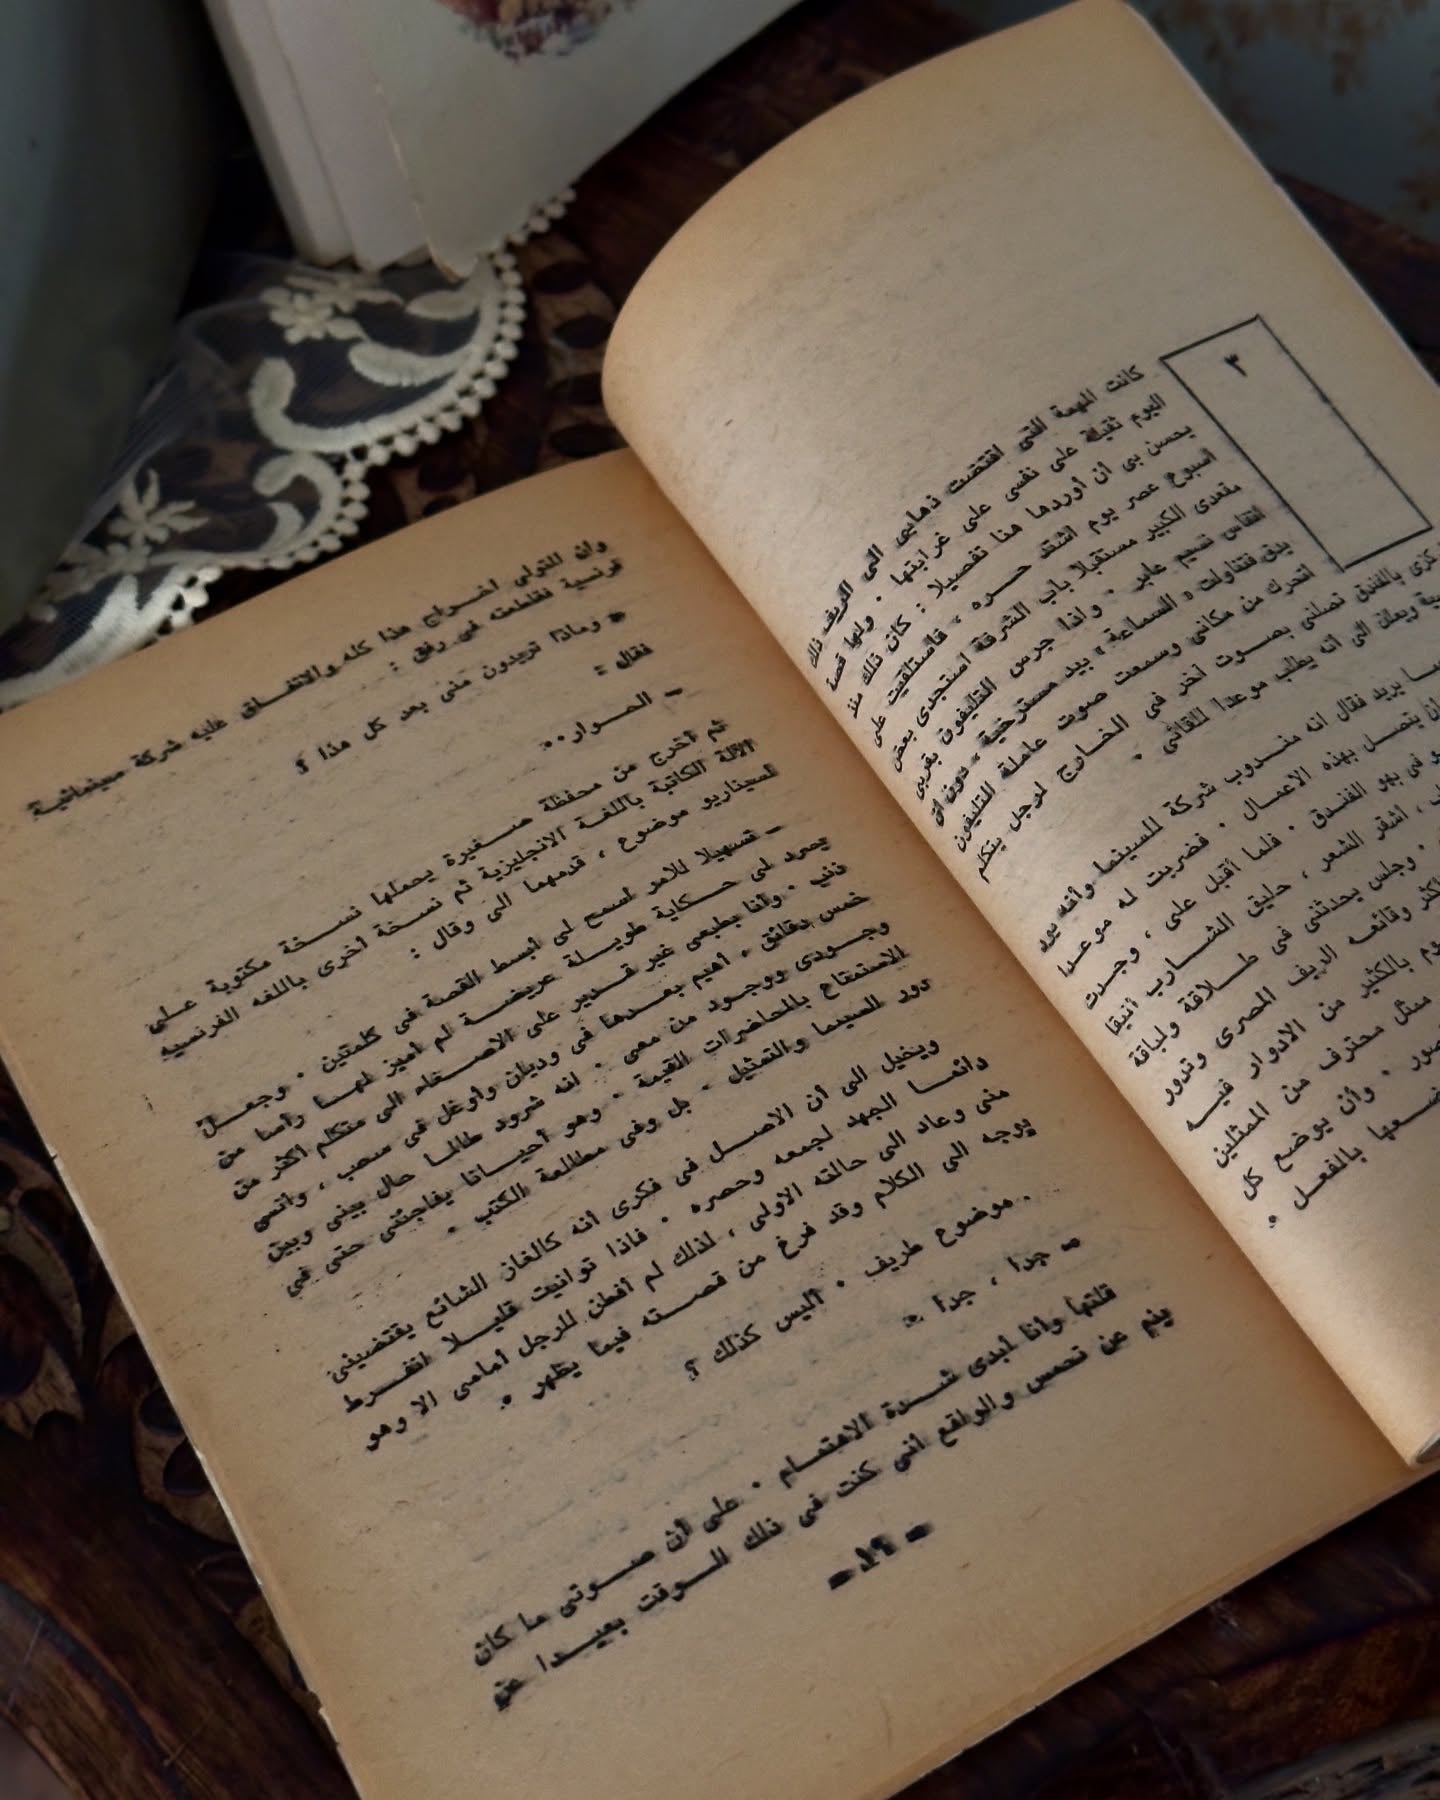 ٣
كانت المهمة التى اقتضت ذهابى الى الريف ذلك
اليوم ثقيلة على نفسى على غرابتها . ولها قصة
يحسن بى أن أوردها هنا تفصيلا : كان ذلك منذ
أسبوع عصر يوم اشتد حـــره ، فاستلقيت على
مقعدى الكبير مستقبلا باب الشرفة استجدى بعض
أنفاس نسيم عابر . واذا جرس التليفون بقربى
يدق فتناولت « السماعة » بيد مسترخية ، دون أن
اتحرك من مكانى وسمعت صوت عاملة التليفون
كزى بالفندق تصلنى بصـوت آخر فى الخـارج لرجل يتكلم
ويعلن الى انه يطلب موعدا للقائى .
يريد فقال انه منـدوب شركة للسينما وأنه يود
أن يتصل بهذه الاعمـال . فضربت له موعـدا
فى بهو الفندق . فلما أقبل على ، وجـدت
، أشقر الشعر ، حليق الشـارب أنيقا
. وجلس يحدثنى فى طـلاقة ولباقة
وقائعه الريف المصرى وتدور
بالكثير من الادوار فيـــه
مثل محترف من الممثلين
. وأن يوضع كل
بالفعـل .
وان للتولى اخـــراج هذا كله والاتفـــاق عليه شركة سينمائيـة
فرنسية فقاطعته فى رفق :
« وماذا تريدون منى بعد كل هذا ؟
فقال :
ـ الحــوار..
ثم أخرج من محفظة صـــغيرة يحملها نســـخة مكتوبة علـى
الآلة الكاتبة باللغـة الانجليزية ثم نسخة أخرى باللغه الفرنسيه
لسيناريو موضوع ، قدمهما الى وقال :
ـ تسهيلا للامر اسمح لى أبسط القصة فى كلمتين . وجعـــل
يسرد لى حـــكاية طويــلة عريضـــة لم أميز لهــا رأسا من
ذنب . وأنا بطبعى غير قـدير على الاصـغاء الى متكلم أكثر من
خمس دقائق ، أهيم بعــدها فى وديان وأوغل فى سحب ، وأنسى
وجــودى ووجـود من معى . انه شرود طالمـا حال بينى وبين
الاستمتاع بالمحاضرات القيمة . وهو أحيـــانا يفاجئنى حتى فى
دور السينما والتمثيل . بل وفى مطالعة الكتب .
ويخيل الى أن الاصــل فى فكرى انه كالغاز الشائع يقتضينى
دائمـا الجهد لجمعه وحصره . فاذا توانيت قليـــلا انفـــرط
منى وعاد الى حالته الاولى ، لذلك لم أفطن للرجل أمامى الا وهو
يوجه الى الكلام وقد فرغ من قصـــته فيما يظهر .
.. موضوع طريف . أليس كذلك ؟
ـ جدا ، جدا .
قلتها وأنا أبدى شـــدة الاهتمـام . على أن صـــوتى ما كان
ينم عن تحمس والواقع أنى كنت فى ذلك الـوقت بعيــدا عن
ـ ١٩ ـ